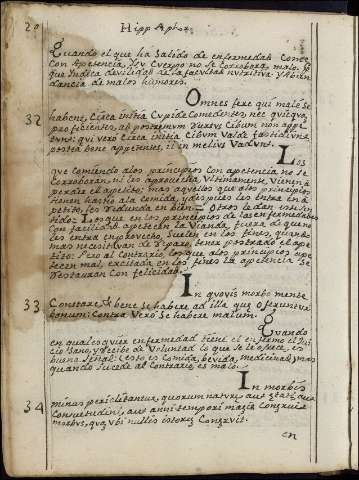 20 Hipp Aphor.
Quando el que ha Salido de enfermedad Come
Con Apetencia, y su Cuerpo no se Corrobora, malo. Por
que Yndica devilidad de la facultad nutritiva y Abun-
dancia de malos humores.
Omnes fere qui malo Se
32 habent, Circa initia Cupide Comedentes, nec quicquam
proficientes, ad postremum rursus Cibum non appe-
tunt: qui vero Circa initia Cibum Valde fastidiunt,
postea bene appetentes, ii in melius Vadunt.
Los
que Comiendo alos principios Con apetencia no Se
Corroboran, ni les aprovecha, Ultimamente Vienen à
perder el apetito; mas aquellos que alos principios
tienen hastio ala Comida, y despues les entra el à
petito, les Redunda en bien.
Los que en los principios de las enfermedades
Con facilidad apetecen la Vianda, fuera de que no
les entra en provecho, Suelen en los fines, quando
mas necesitavan de Reparo, tener postrado el ape
tito: Pero al Contrario, los que alos principios apè
tecen mal, excitada en los fines la apetencia Se
Restauran con felicidad.
In quovis morbo mente
33 Constare, & bene Se habere ad illa que offeruntur
bonum: Contra Vero Se habere malum.
Quando
en qualesquier enfermedad tiene el enfermo el Jui
cio Sano, y Recibe de Voluntad lo que Se le ofrece, es
buena Señal: (esto es Comida, bevida, medicina) mas
quando Sucede al Contrario, es malo.
In morbis
34 minus periclitantur, quorum naturæ, aut ætati, aut
Consuetudini, aut anni tempori magis Congruit
morbus, quam ubi nullis istorum Congruit.
en